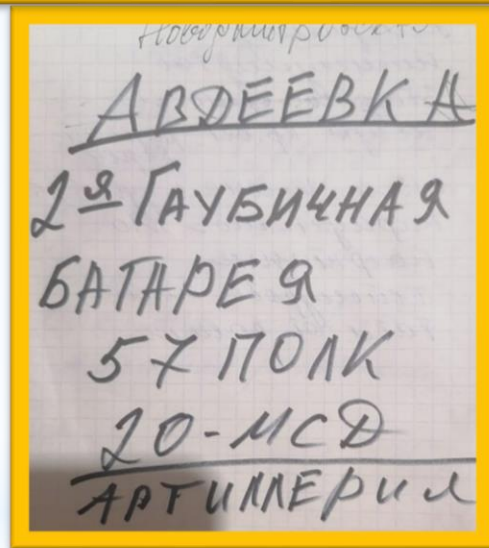 АВДЕЕВКА
2я ГАУБИЧНАЯ
БАТАРЕЯ
57 ПОЛК
20-МСД
АРТИЛЛЕРИЯ